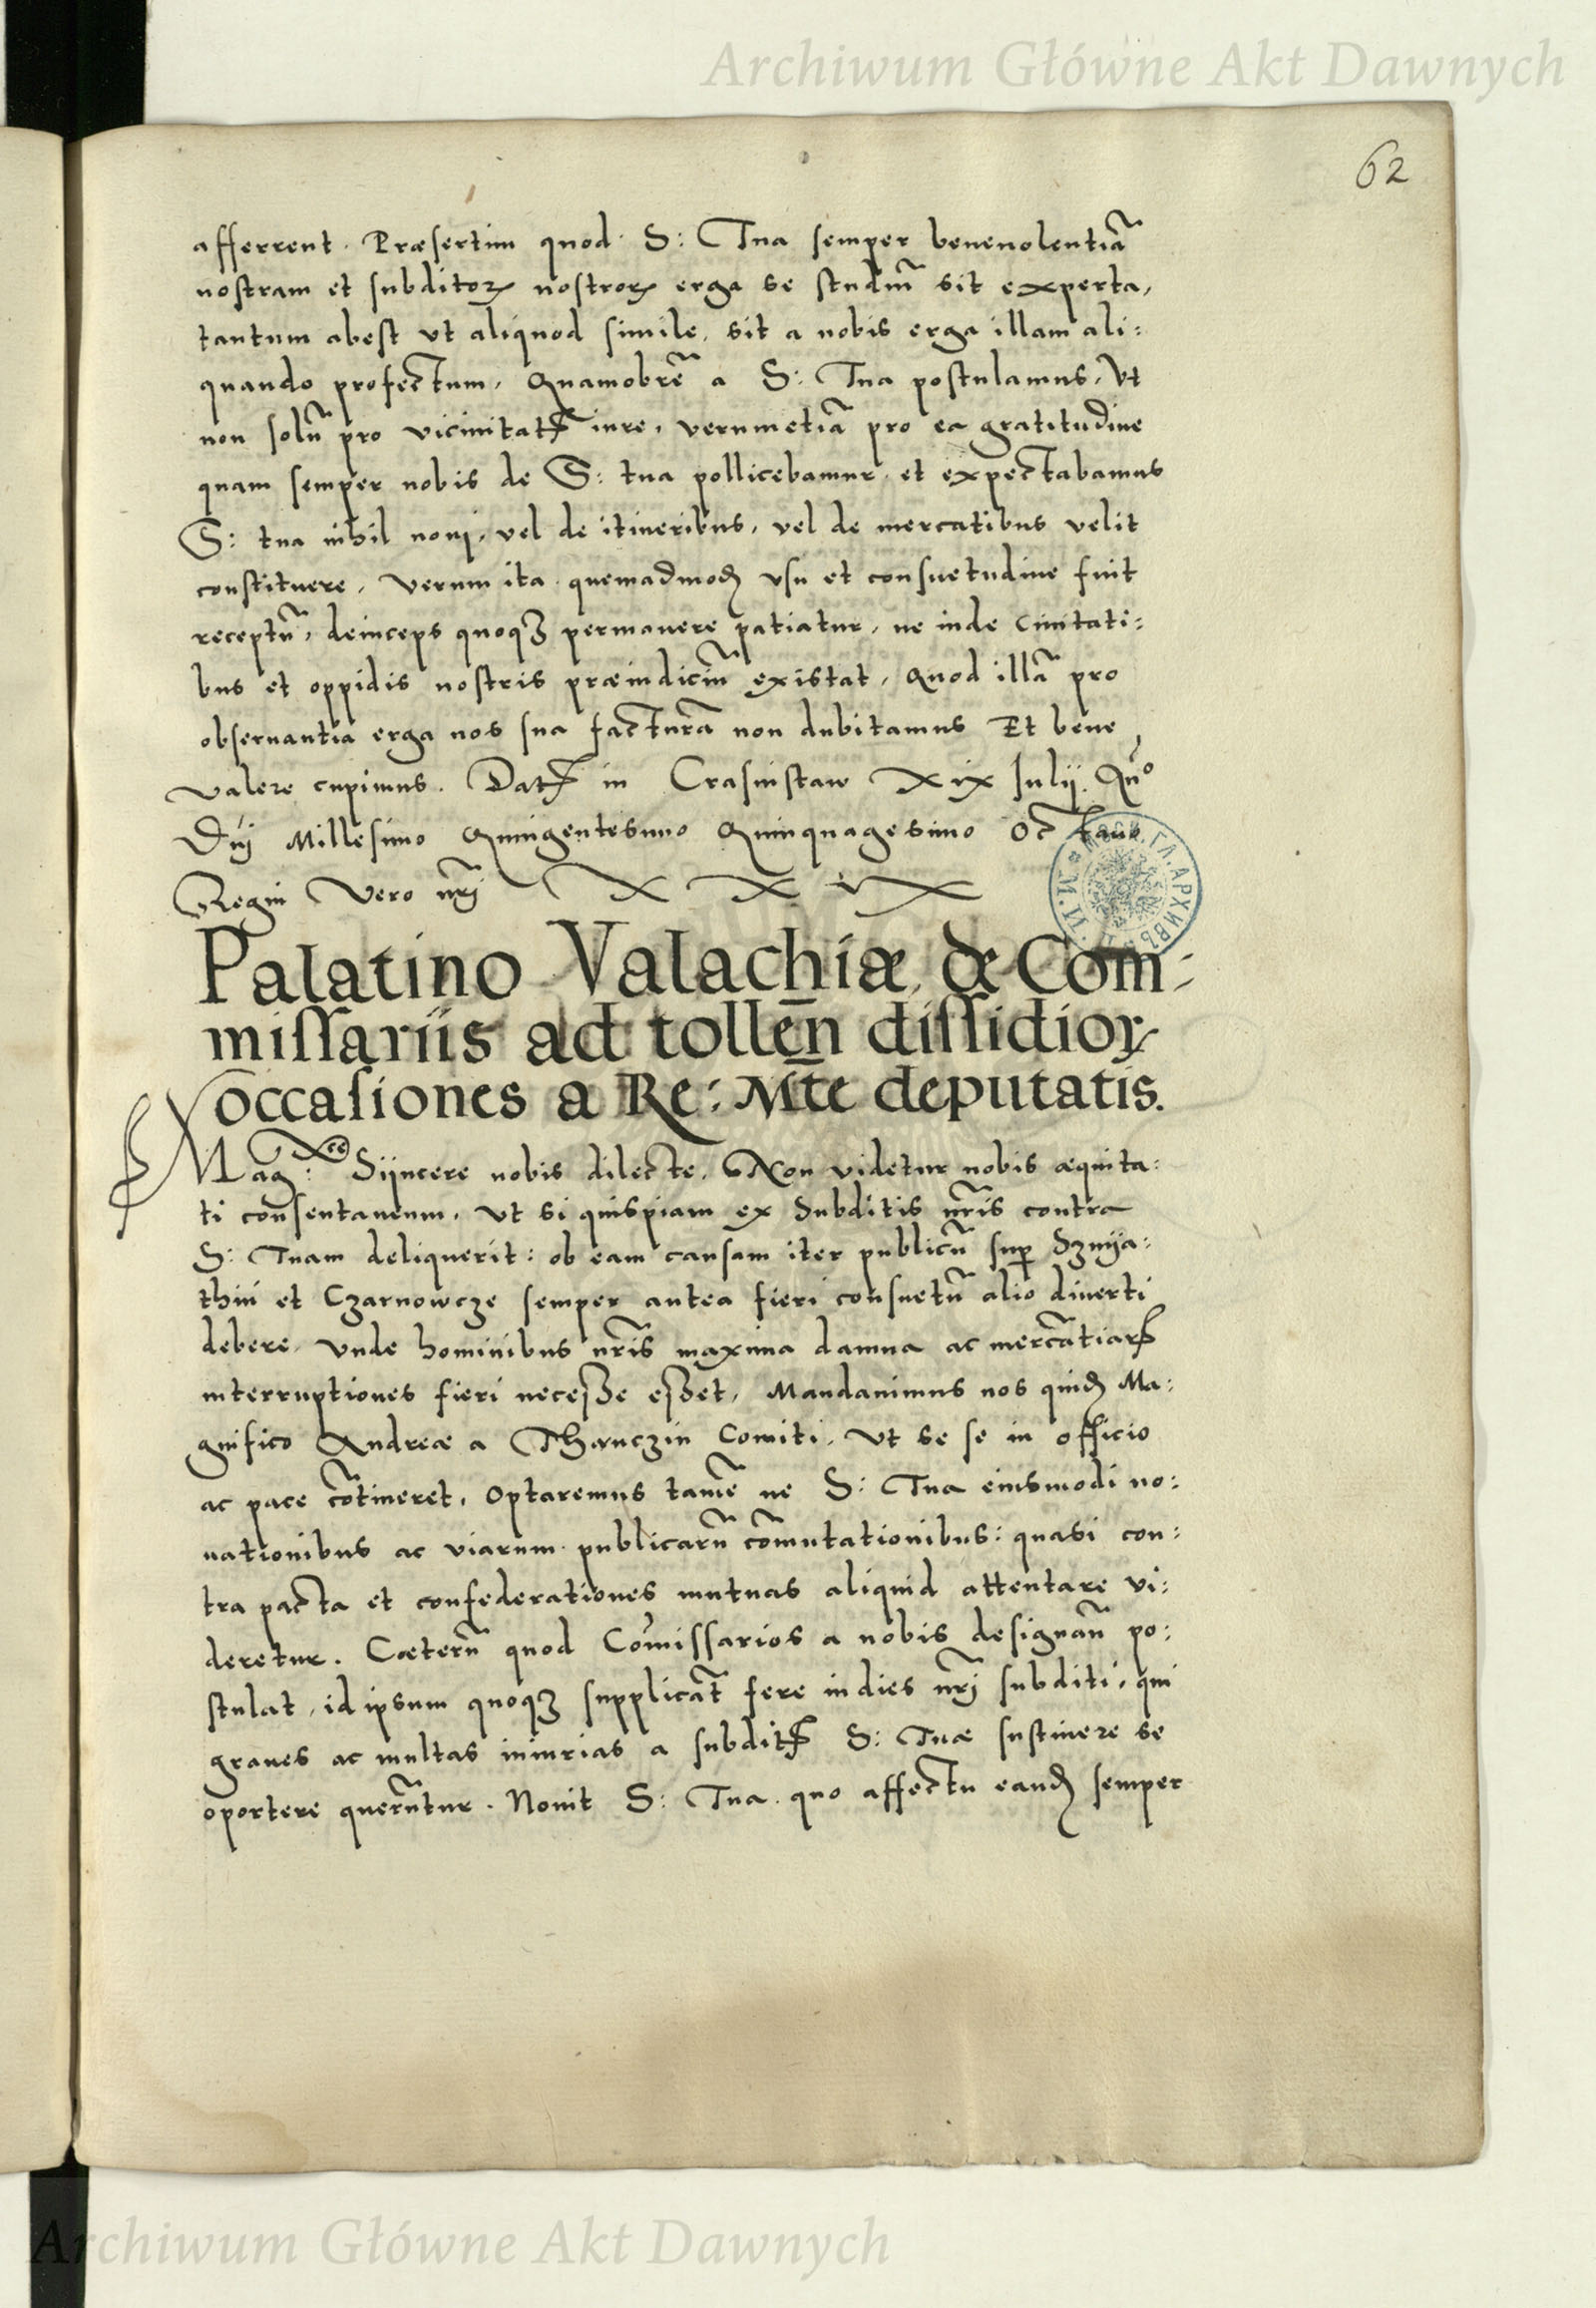 Archiwum Główne Akt Dawnych
62
afferrent. Præsertim quod S: Tua semper beneuolentiã
nostram et subditoꝝ nostroꝝ erga se studiũ sit experta,
tantum abest vt aliquod simile, sit a nobis erga illam ali:
quando profectum, Quamobrẽ a S: Tua postulamus, Vt
non solũ pro vicinitatꝭ iure, verumetiã pro ea gratitudine
quam semper nobis de S: tua pollicebamur, et expectabamus
S: tua nihil noui, vel de itineribus, vel de mercatibus velit
constituere, verum ita quemadmodꝫ vsu et consuetudine fuit
receptũ, deinceps quoqꝫ permanere patiatur, ne inde Ciuitati:
bus et oppidis nostris præiudiciũ existat, Quod illã pro
obseruantia erga nos sua facturã non dubitamus Et bene
valere cupimus. Datꝭ in Crasnistaw XIX Iulij. Añº
Dñj Millesimo Quingentesimo Quinquagesimo Octauo
Regni Vero nr̃j
Palatino Valachiæ, & Com:
missariis ad tollen̄ dissidioꝝ
occasiones a Re: Mt̄e deputatis.
Mag:ce Sijncere nobis dilecte, Non videtur nobis æquita:
ti consentaneum, vt si quispiam ex Subditis nr̃is contra
S: Tuam deliquerit: ob eam causam iter publicũ suꝑ Sznija:
thin et Czarnowcze semper antea fieri consuetũ alio diuerti
debere, vnde hominibus nr̃is maxima damna ac mercãtiarꝭ
interruptiones fieri necesse esset, Mandauimus nos quidꝫ Ma:
gnifico Andreæ a Thanczin Comiti, Vt se se in officio
ac pace cõtineret, Optaremus tamẽ ne S: Tua eiusmodi no:
uationibus ac viarum publicarũ cõmutationibus: quasi con:
tra pacta et confederationes mutuas aliquid attentare vi:
deretur. Cæterũ quod Com̃issarios a nobis designañ po:
stulat, id ipsum quoqꝫ supplicãt fere indies nr̃j subditi, qui
graues ac multas iniurias a subditꝭ S: Tuæ sustinere se
oportere querũtur. Nouit S: Tua quo affectu eandꝫ semper
Archiwum Główne Akt Dawnych